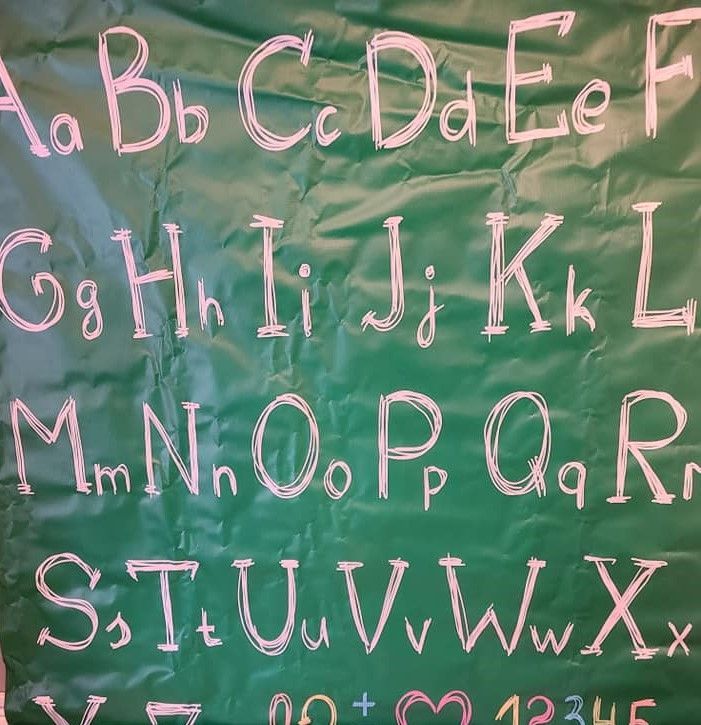 Aa Bb Cc Dd Ee F
Gg Hh Ii Jj Kk L
Mm Nn Oo Pp Qq Rr
Ss Tt Uu Vv Ww Xx
Y Z + 12345